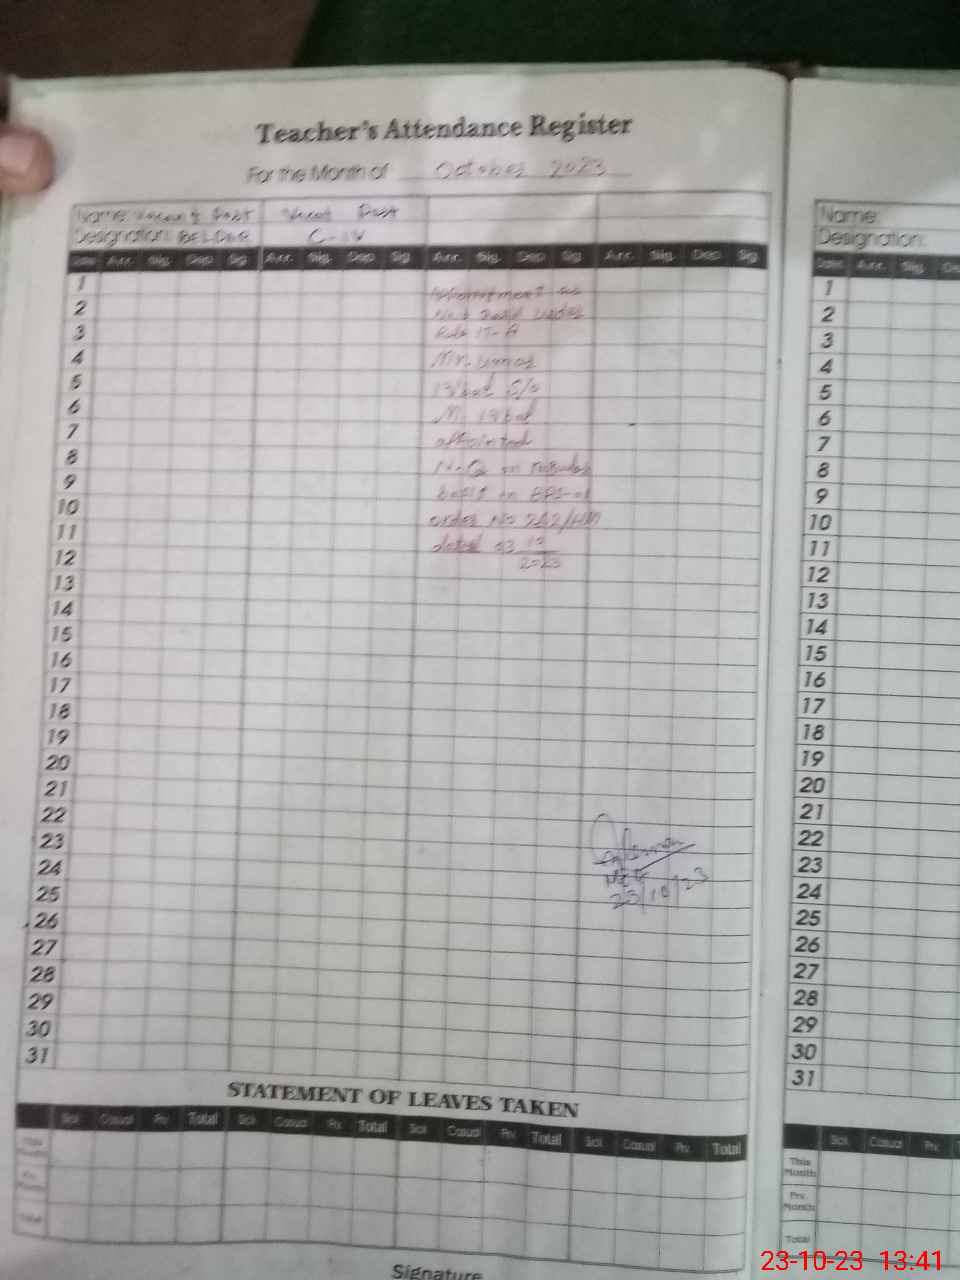 Teacher's Attendance Register
For the Month of October 2023
Name: Vacant Post Vacant Post
Designation: BELDAR C-IV
Date Arr. Sig. Dep. Sig. Arr. Sig. Dep. Sig. Arr. Sig. Dep. Sig. Arr. Sig. Dep. Sig.
1
2
3
4
5
6
7
8
9
10
11
12
13
14
15
16
17
18
19
20
21
22
23
24
25
26
27
28
29
30
31
Appointment as
Rule 17-A
Mr. Umar
Iqbal S/O
M. Iqbal
appointed
N-Q on
basis in BPS-01
order No 242/HM
dated 03 10
2023
23/10/23
STATEMENT OF LEAVES TAKEN
Sick Casual Prv. Total Sick Casual Prv. Total Sick Casual Prv. Total Sick Casual Prv. Total
This Month
Prv. Month
Total
Signature
Name:
Designation:
Date Arr. Sig.
1
2
3
4
5
6
7
8
9
10
11
12
13
14
15
16
17
18
19
20
21
22
23
24
25
26
27
28
29
30
31
Sick Casual Prv.
This Month
Prv. Month
Total
23-10-23 13:41